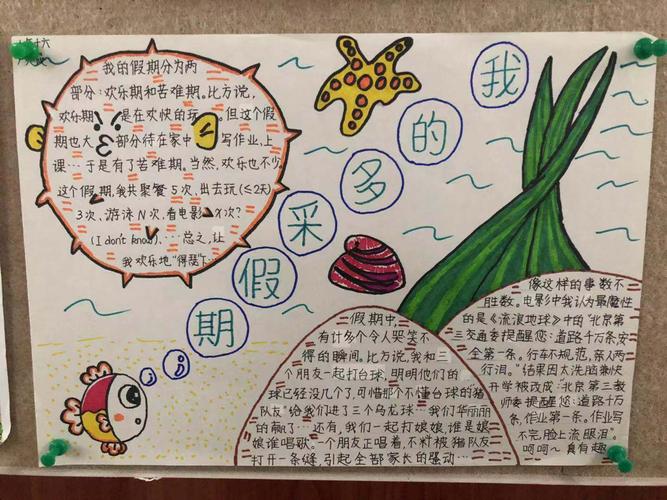 我的多采假期
我的假期分为两
部分:欢乐期和苦难期。比方说,
欢乐期 是在欢快的玩 。但这个假
期也大 部分待在家中 写作业,上
课…于是有了苦难期。当然,欢乐也不少
这个假期,我共聚餐5次,出去玩(≤2天)
3次,游泳N次,看电影X次?
(I don't know)、…总之,让
我欢乐地"得瑟"下
假期中,
有许多个令人哭笑不
得的瞬间。比方说,我和三
个朋友一起打台球,明明他们的
球已经没几个了,可惜那个不懂台球的"猪
队友"给我们进了三个乌龙球…我们华丽丽
的输了…还有,我们一起打娘娘,谁是娘
娘谁唱歌。一个朋友正唱着,不料被猪队友
打开一条缝,引起全部家长的骚动…
像这样的事数不
胜数。电影中我认为最魔性
的是《流浪地球》中的"北京第
三交通委提醒您:道路千万条,安
全第一条。行车不规范,亲人两
行泪。"结果因太洗脑,兼快
开学被改成:"北京第三教
师委提醒您:道路千万
条,作业第一条。作业写
不完,脸上流眼泪"。
呵呵~真有趣